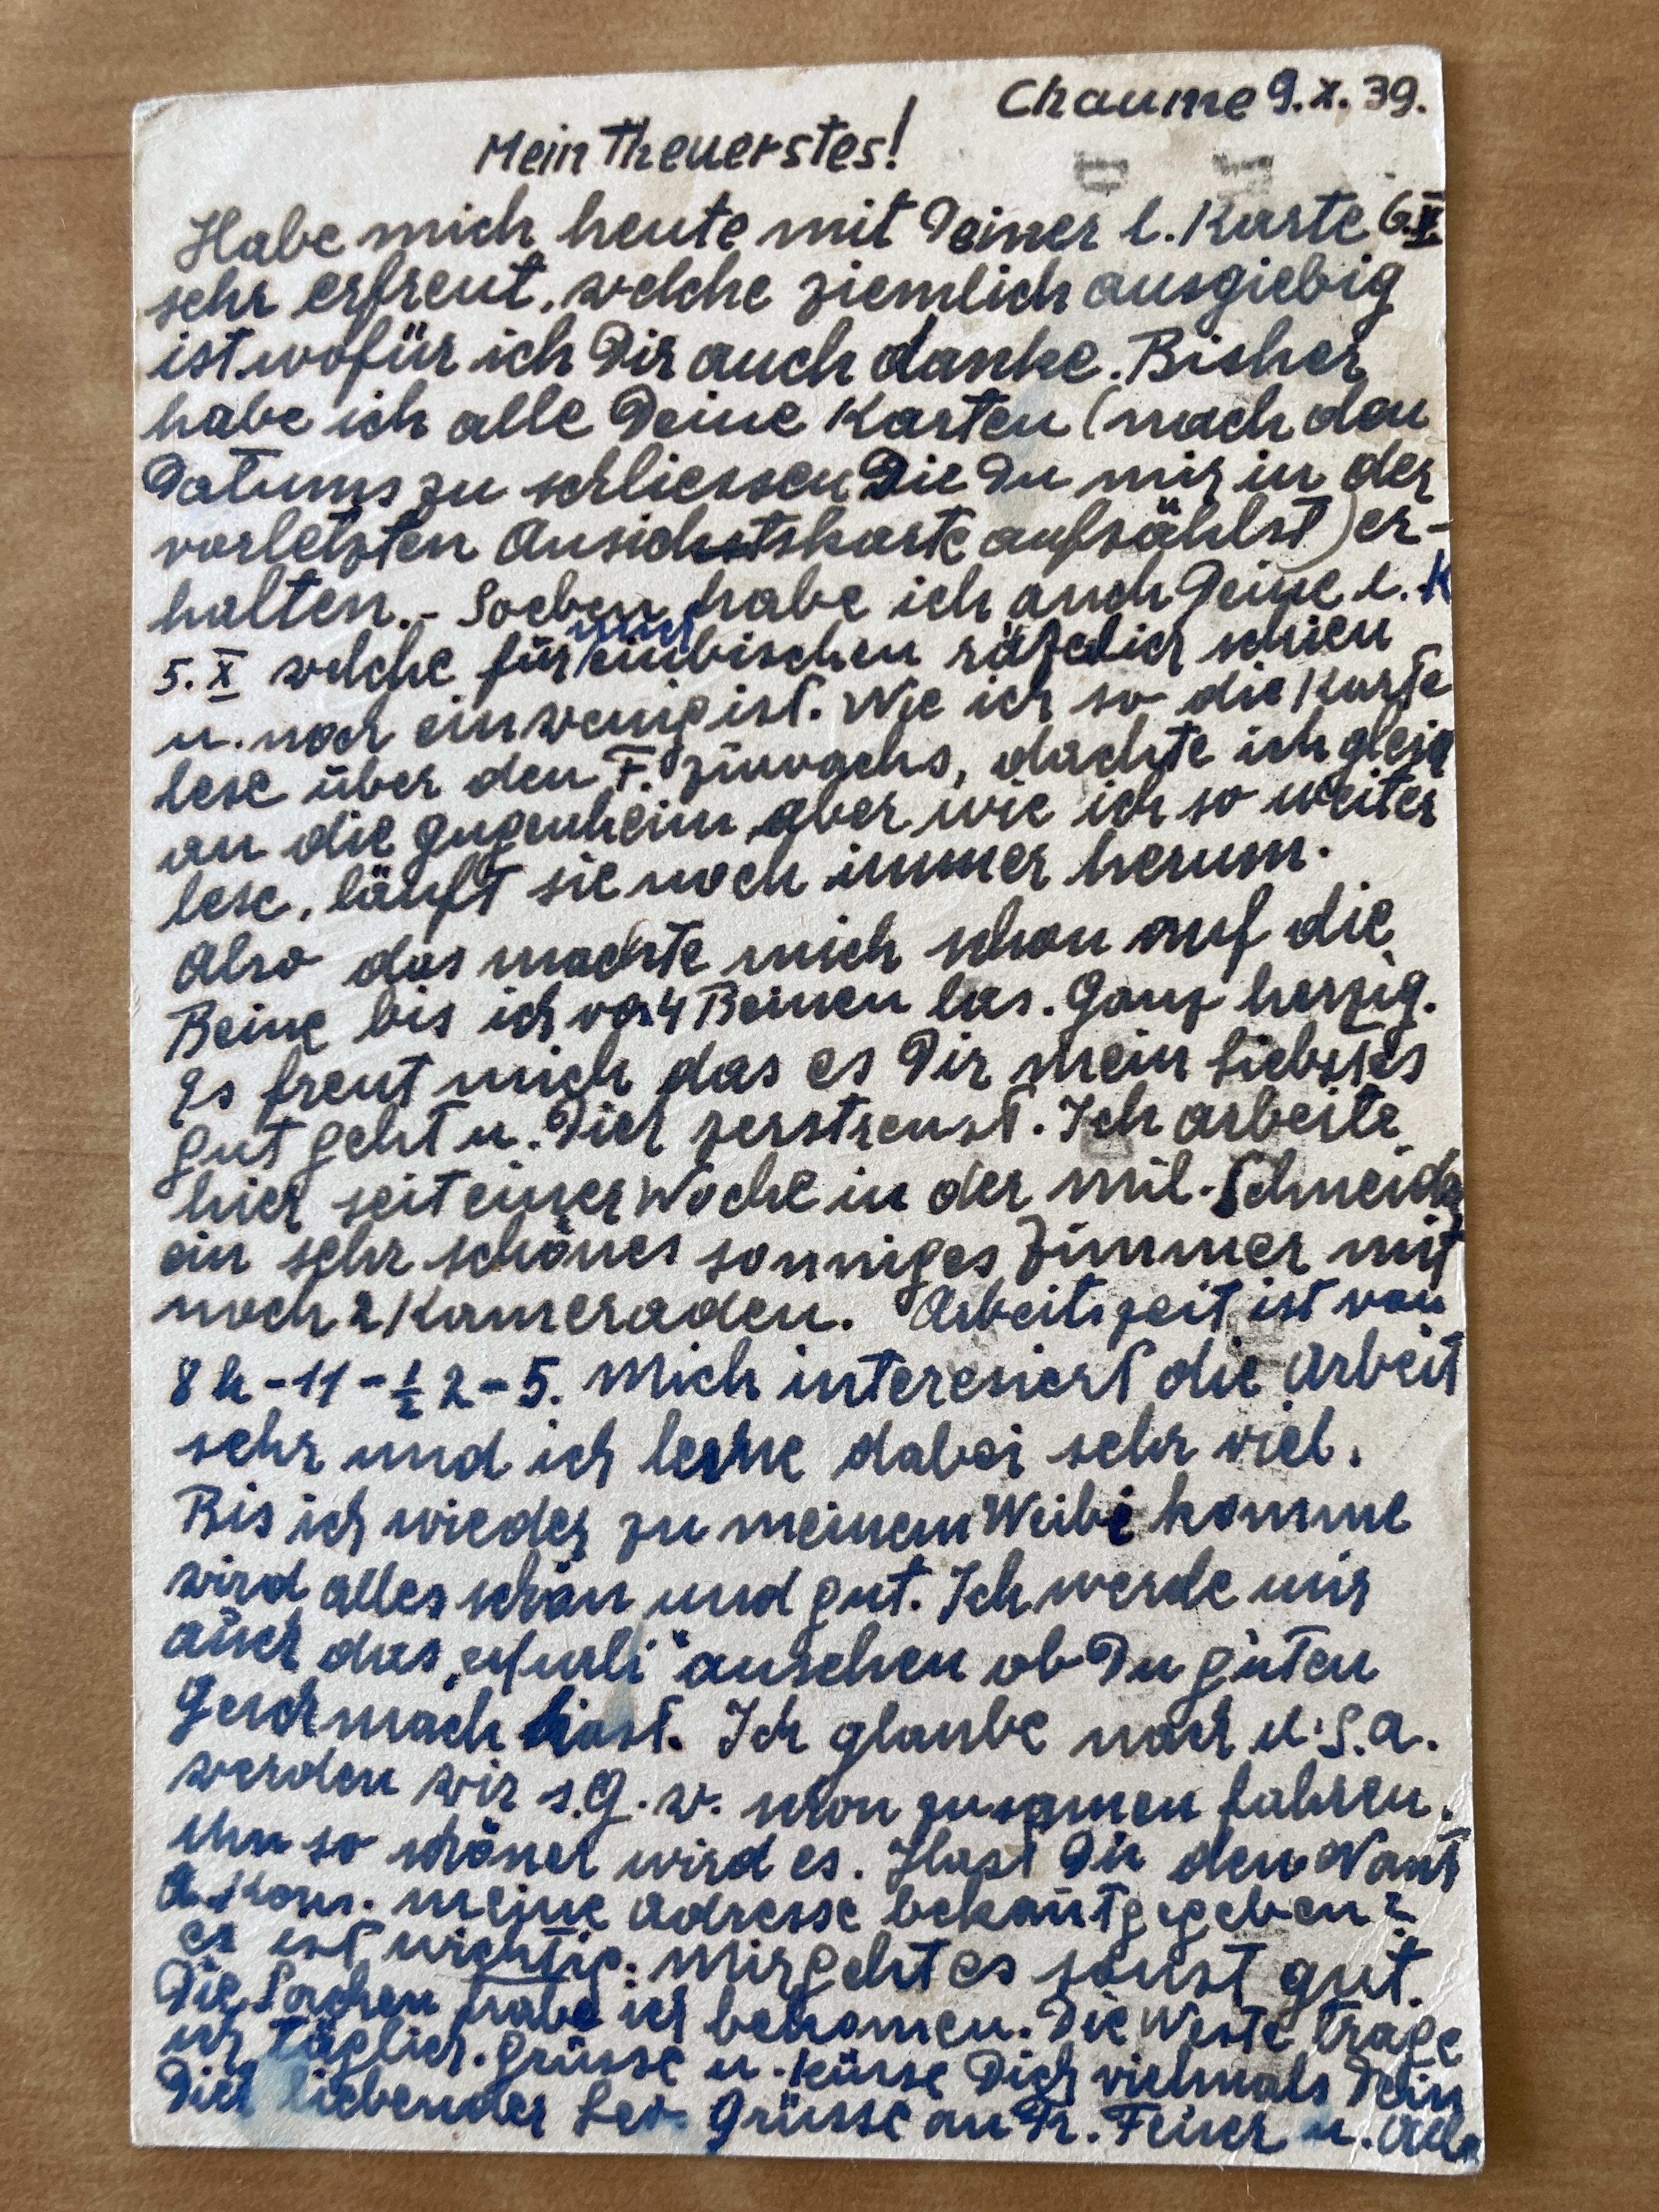 Chaume 9.X.39.
Mein Theuerstes!
Habe mich heute mit Deiner l. Karte 6.X
sehr erfreut, welche ziemlich ausgiebig
ist wofür ich Dir auch danke. Bisher
habe ich alle Deine Karten (nach den
Datums zu schliessen Die Du mir in der
vorletzten Ansichtskarte aufzählst) er-
halten.- Soeben habe ich auch Deine l. K
5.X welche für mich einbischen rätzelich schien
u. noch ein wenig ist. Wie ich so die Karte
lese über den F. zuwachs, dachte ich gleich
an die Gugenheim aber wie ich so weiter
lese, läuft sie noch immer herum.
Also das machte mich schon auf die
Beine bis ich von 4 Beinen las. Ganz herzig.
Es freut mich das es Dir mein Liebstes
gut geht u. Dich zerstreust. Ich arbeite
hier seit einer Woche in der mil. Schneider
ein sehr schönes sonniges Zimmer mit
noch 2 Kameraden. Arbeitszeit ist von
8 h - 11 - ½ 2 - 5. Mich interesiert die Arbeit
sehr und ich lerne dabei sehr viel.
Bis ich wieder zu meinem Weibi komme
wird alles schön und gut. Ich werde mir
auch das ansehen ob Du guten
Geschmach hast. Ich glaube nach U.S.A.
werden wir s.G.w. schon zusamen fahren.
um so schöner wird es. Hast Du den
A. Kom. meine Adresse bekantgegeben?
es ist wichtig. Mir geht es sonst gut.
Die Sachen habe ich bekomen. Die Weste trage
ich täglich. Grüsse u. Küsse Dich vielmals Dein
Dich liebender Leo. Grüsse an Fr. Feiner u.